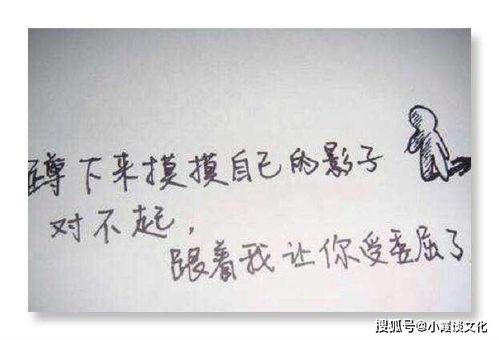 蹲下来摸摸自己的影子
对不起，
跟着我让你受委屈了
搜狐号@小霞谈文化